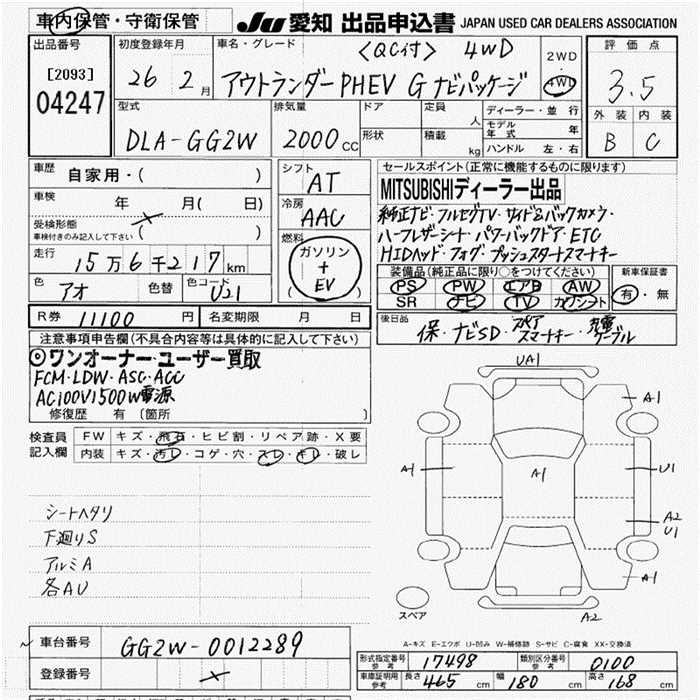 車内保管・守衛保管 JU 愛知 出品申込書 JAPAN USED CAR DEALERS ASSOCIATION
出品番号 初度登録年月 車名・グレード 評価点
[2093] 26 2月 〈QC付〉 4WD 2WD
04247 アウトランダーPHEV G ナビパッケージ 4WD 3.5
型式 排気量 ドア 定員 人 ディーラー・並行 外装 内装
DLA-GG2W 2000cc 形状 積載 kg モデル年式 年 B C
ハンドル 左・右
車歴 自家用・( ) シフト AT セールスポイント(正常に機能するものに限ります)
車検 年 月( 日) 冷房 AAC MITSUBISHIディーラー出品
受検形態 車検付きのみ記入して下さい ( ) 純正ナビ・フルセグTV・サイド&バックカメラ・
燃料 ガソリン + EV ハーフレザーシート・パワーバックドア・ETC
走行 15万6千217km HIDヘッド・フォグ・プッシュスタートスマートキー
色 アオ 色替 色コード U21 装備品(純正品に限り〇をつけてください) 新車保証書
PS PW エアB AW 有・無
SR ナビ TV カワシート
R券 11100円 名変期限 月 日 後日品 保・ナビSD・スペアスマートキー・充電ケーブル
注意事項申告欄(不具合内容等は具体的に記入して下さい)
◎ワンオーナー・ユーザー買取
FCM・LDW・ASC・ACC
AC100V1500W電源
修復歴 有 〔箇所
検査員記入欄 FW キズ・飛石・ヒビ割・リペア跡・X要
内装 キズ・汚レ・コゲ・穴・スレ・キレ・破レ
UA1
A1
A1 A1 U1
A2
U1
A1
A2
スペア
シートヘタリ
下廻りS
アルミA
各AU
A-キズ E-エクボ U-凹み W-補修跡 S-サビ C-腐食 XX-交換済
車台番号 GG2W-0012289 形式指定番号 参考 17498 類別区分番号 参考 0100
登録番号 車庫証明用 参考 長さ 465cm 幅 180cm 高さ 168cm